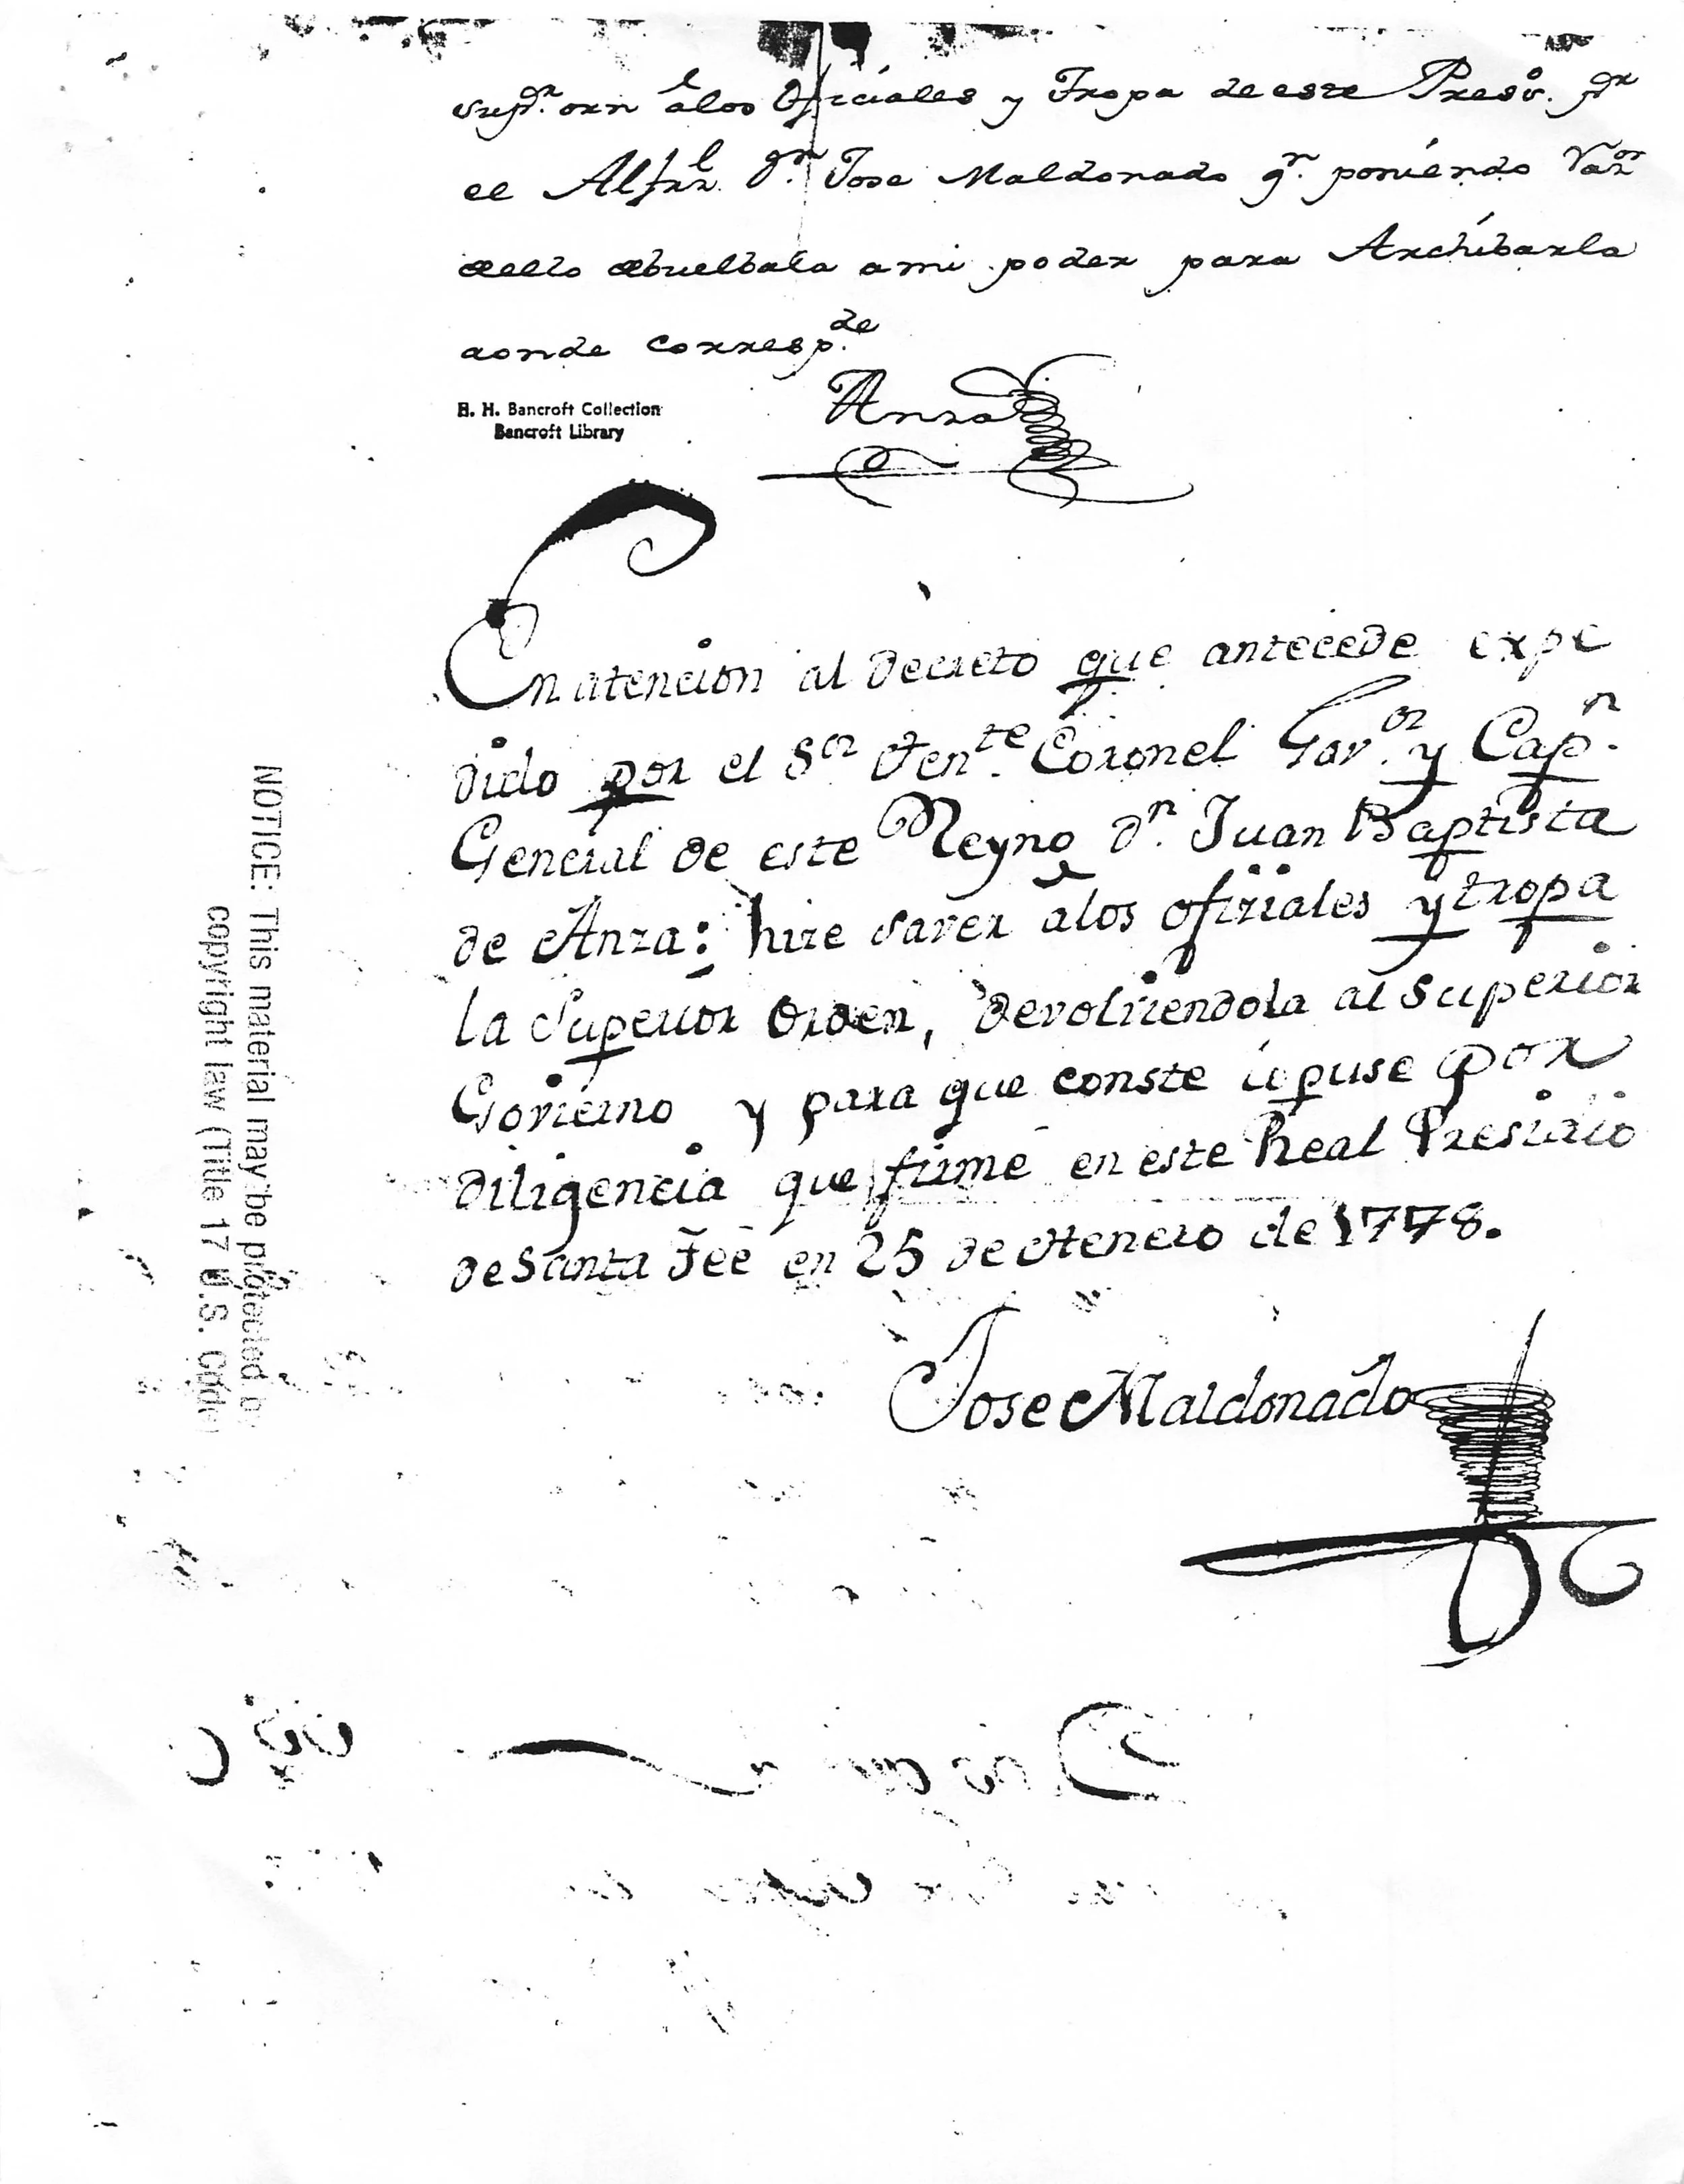 sup.ᵒʳ orn â los Oficiales y Tropa de este Presiᵒ. pʳ
el Alfxz. Dⁿ. Jose Maldonado qⁿ. poniendo Razᵒⁿ
dello debuelbala a mi poder para Archibarla
donde corresp.ᵈᵉ
Anza
B. H. Bancroft Collection
Bancroft Library
En atencion al decreto que antecede expe
dido por el Sᵒʳ Then.ᵗᵉ Coronel Gov.ᵒʳ y Cap.ⁿ
General de este Reyno Dⁿ. Juan Baptista
de Anza: hize saver âlos ofiziales y tropa
la Superior Orden, devolviendola al Superior
Govierno y para que conste lo puse por
diligencia que firmé en este Real Presidio
de Santa Feé en 25 de Henero de 1778.
Jose Maldonado
NOTICE: This material may be protected by
copyright law (Title 17 U.S. Code)